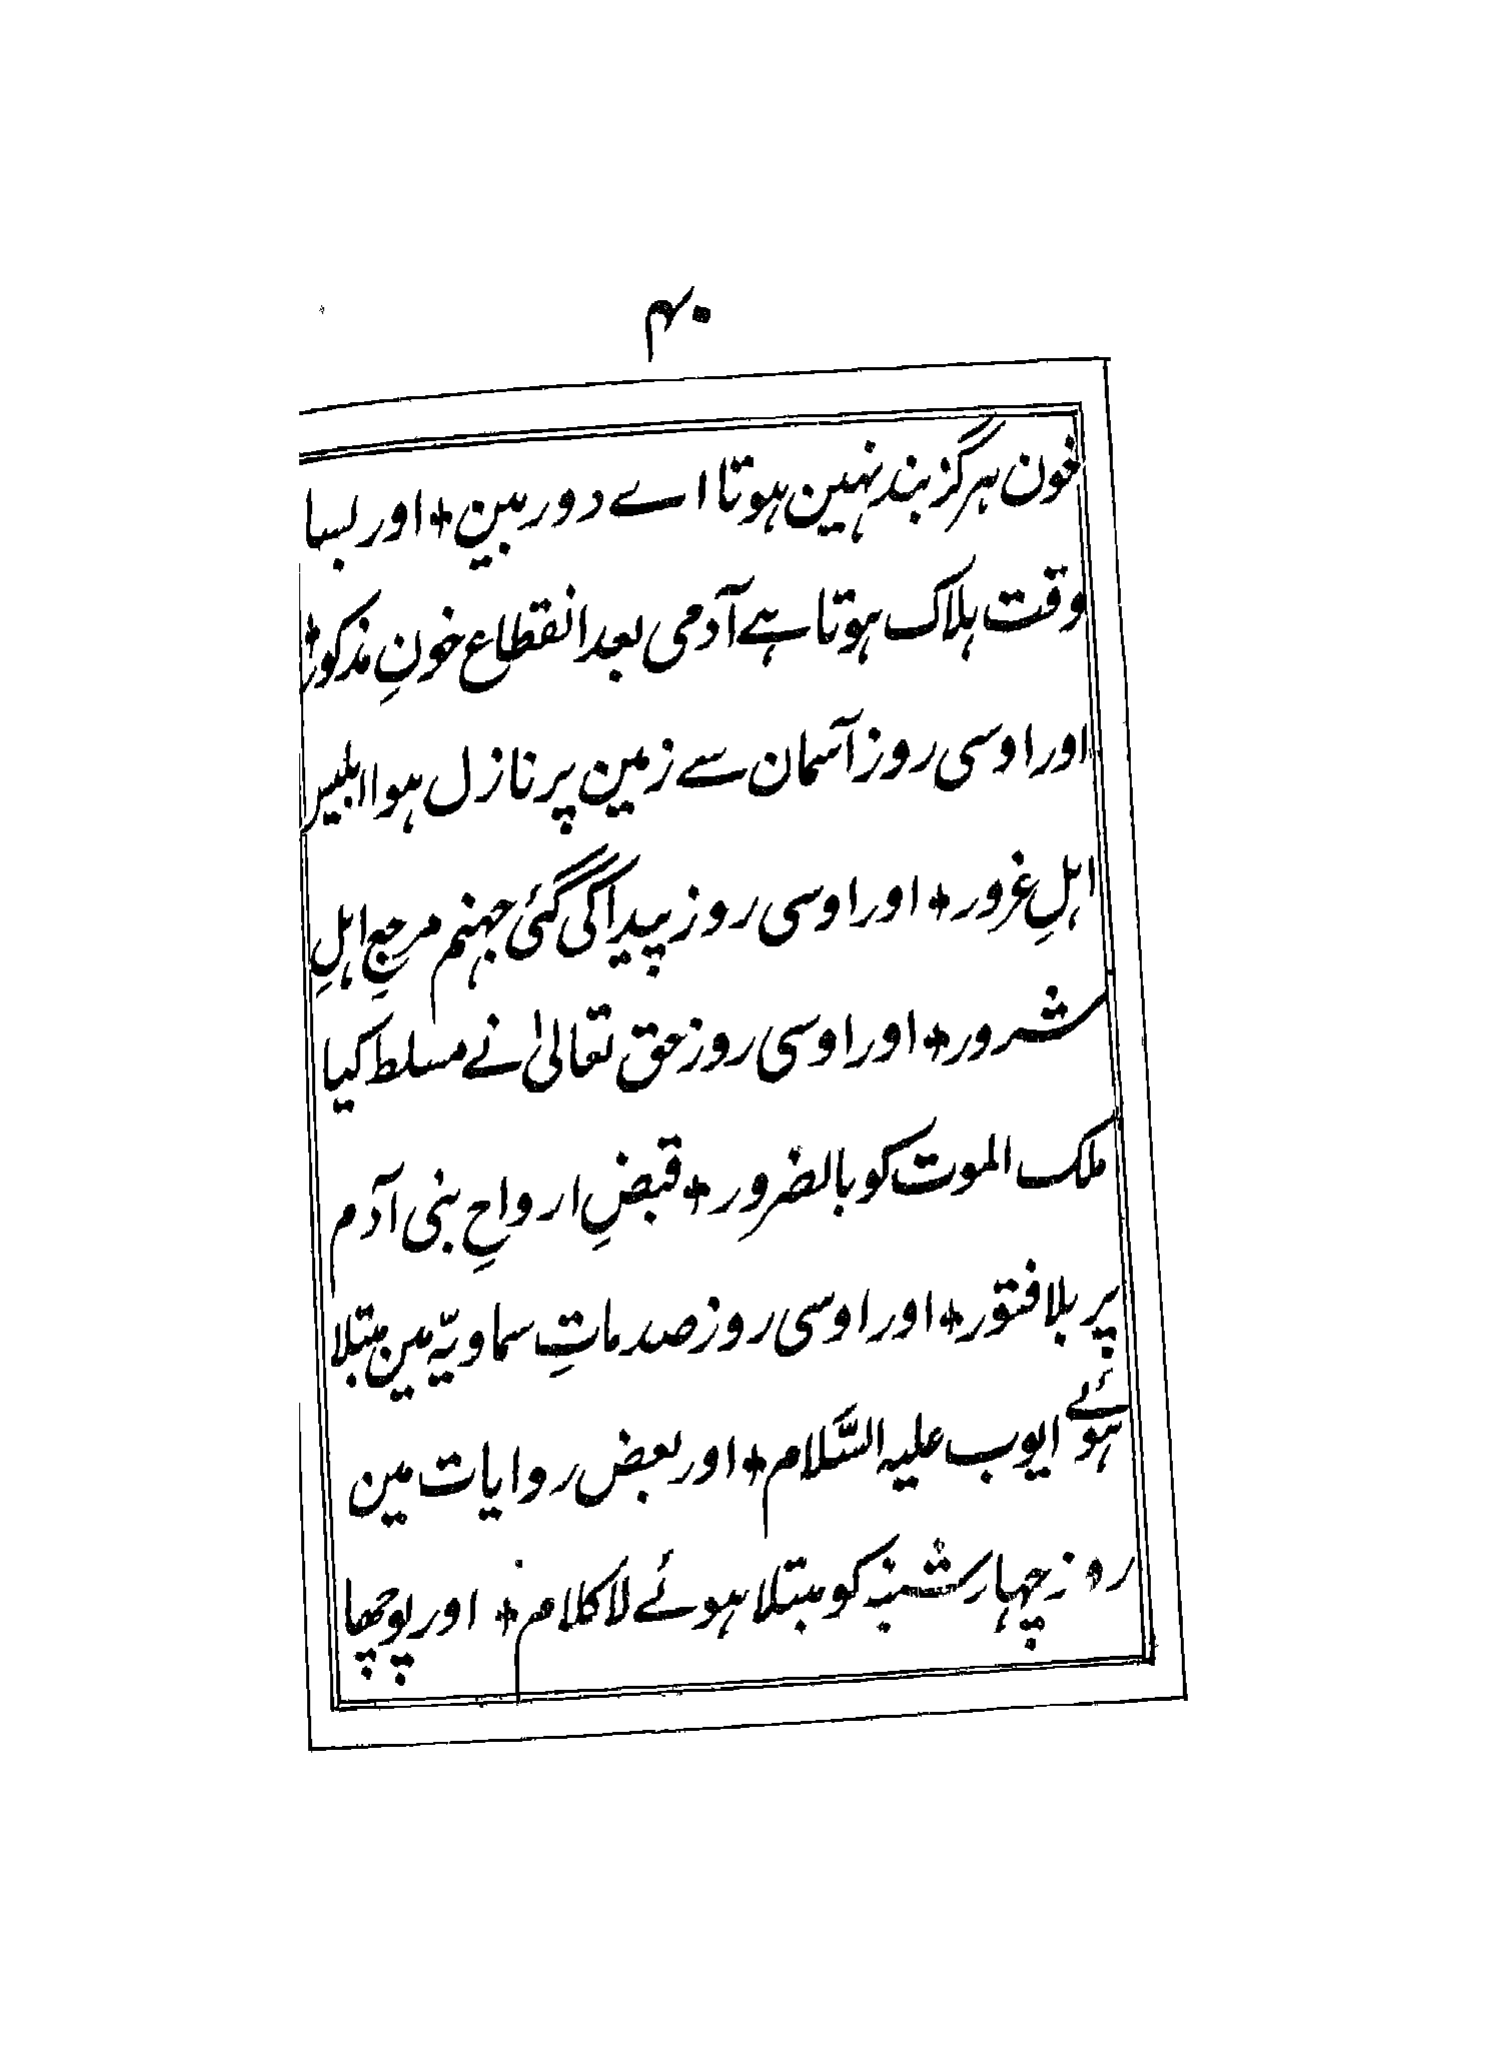 ۴۰
خون ہرگز بند نہین ہوتا اے دوربین ٭ اور بسا
وقت ہلاک ہوتا ہے آدمی بعد انقطاع خونِ مذکور ٭
اور اوسی روز آسمان سے زمین پر نازل ہوا ابلیس
اہلِ غرور ٭ اور اوسی روز پیدا کی گئی جہنم مرجعِ اہلِ
شرور ٭ اور اوسی روز حق تعالیٰ نے مسلط کیا
ملک الموت کو بالضرور ٭ قبضِ ارواحِ بنی آدم
پر بلا فتور ٭ اور اوسی روز صدماتِ سماویّہ مین مبتلا
ہوئے ایوب علیہ السَّلام ٭ اور بعض روایات مین
روز چہار شنبہ کو مبتلا ہوئے لاکلام ٭ اور پوچھا